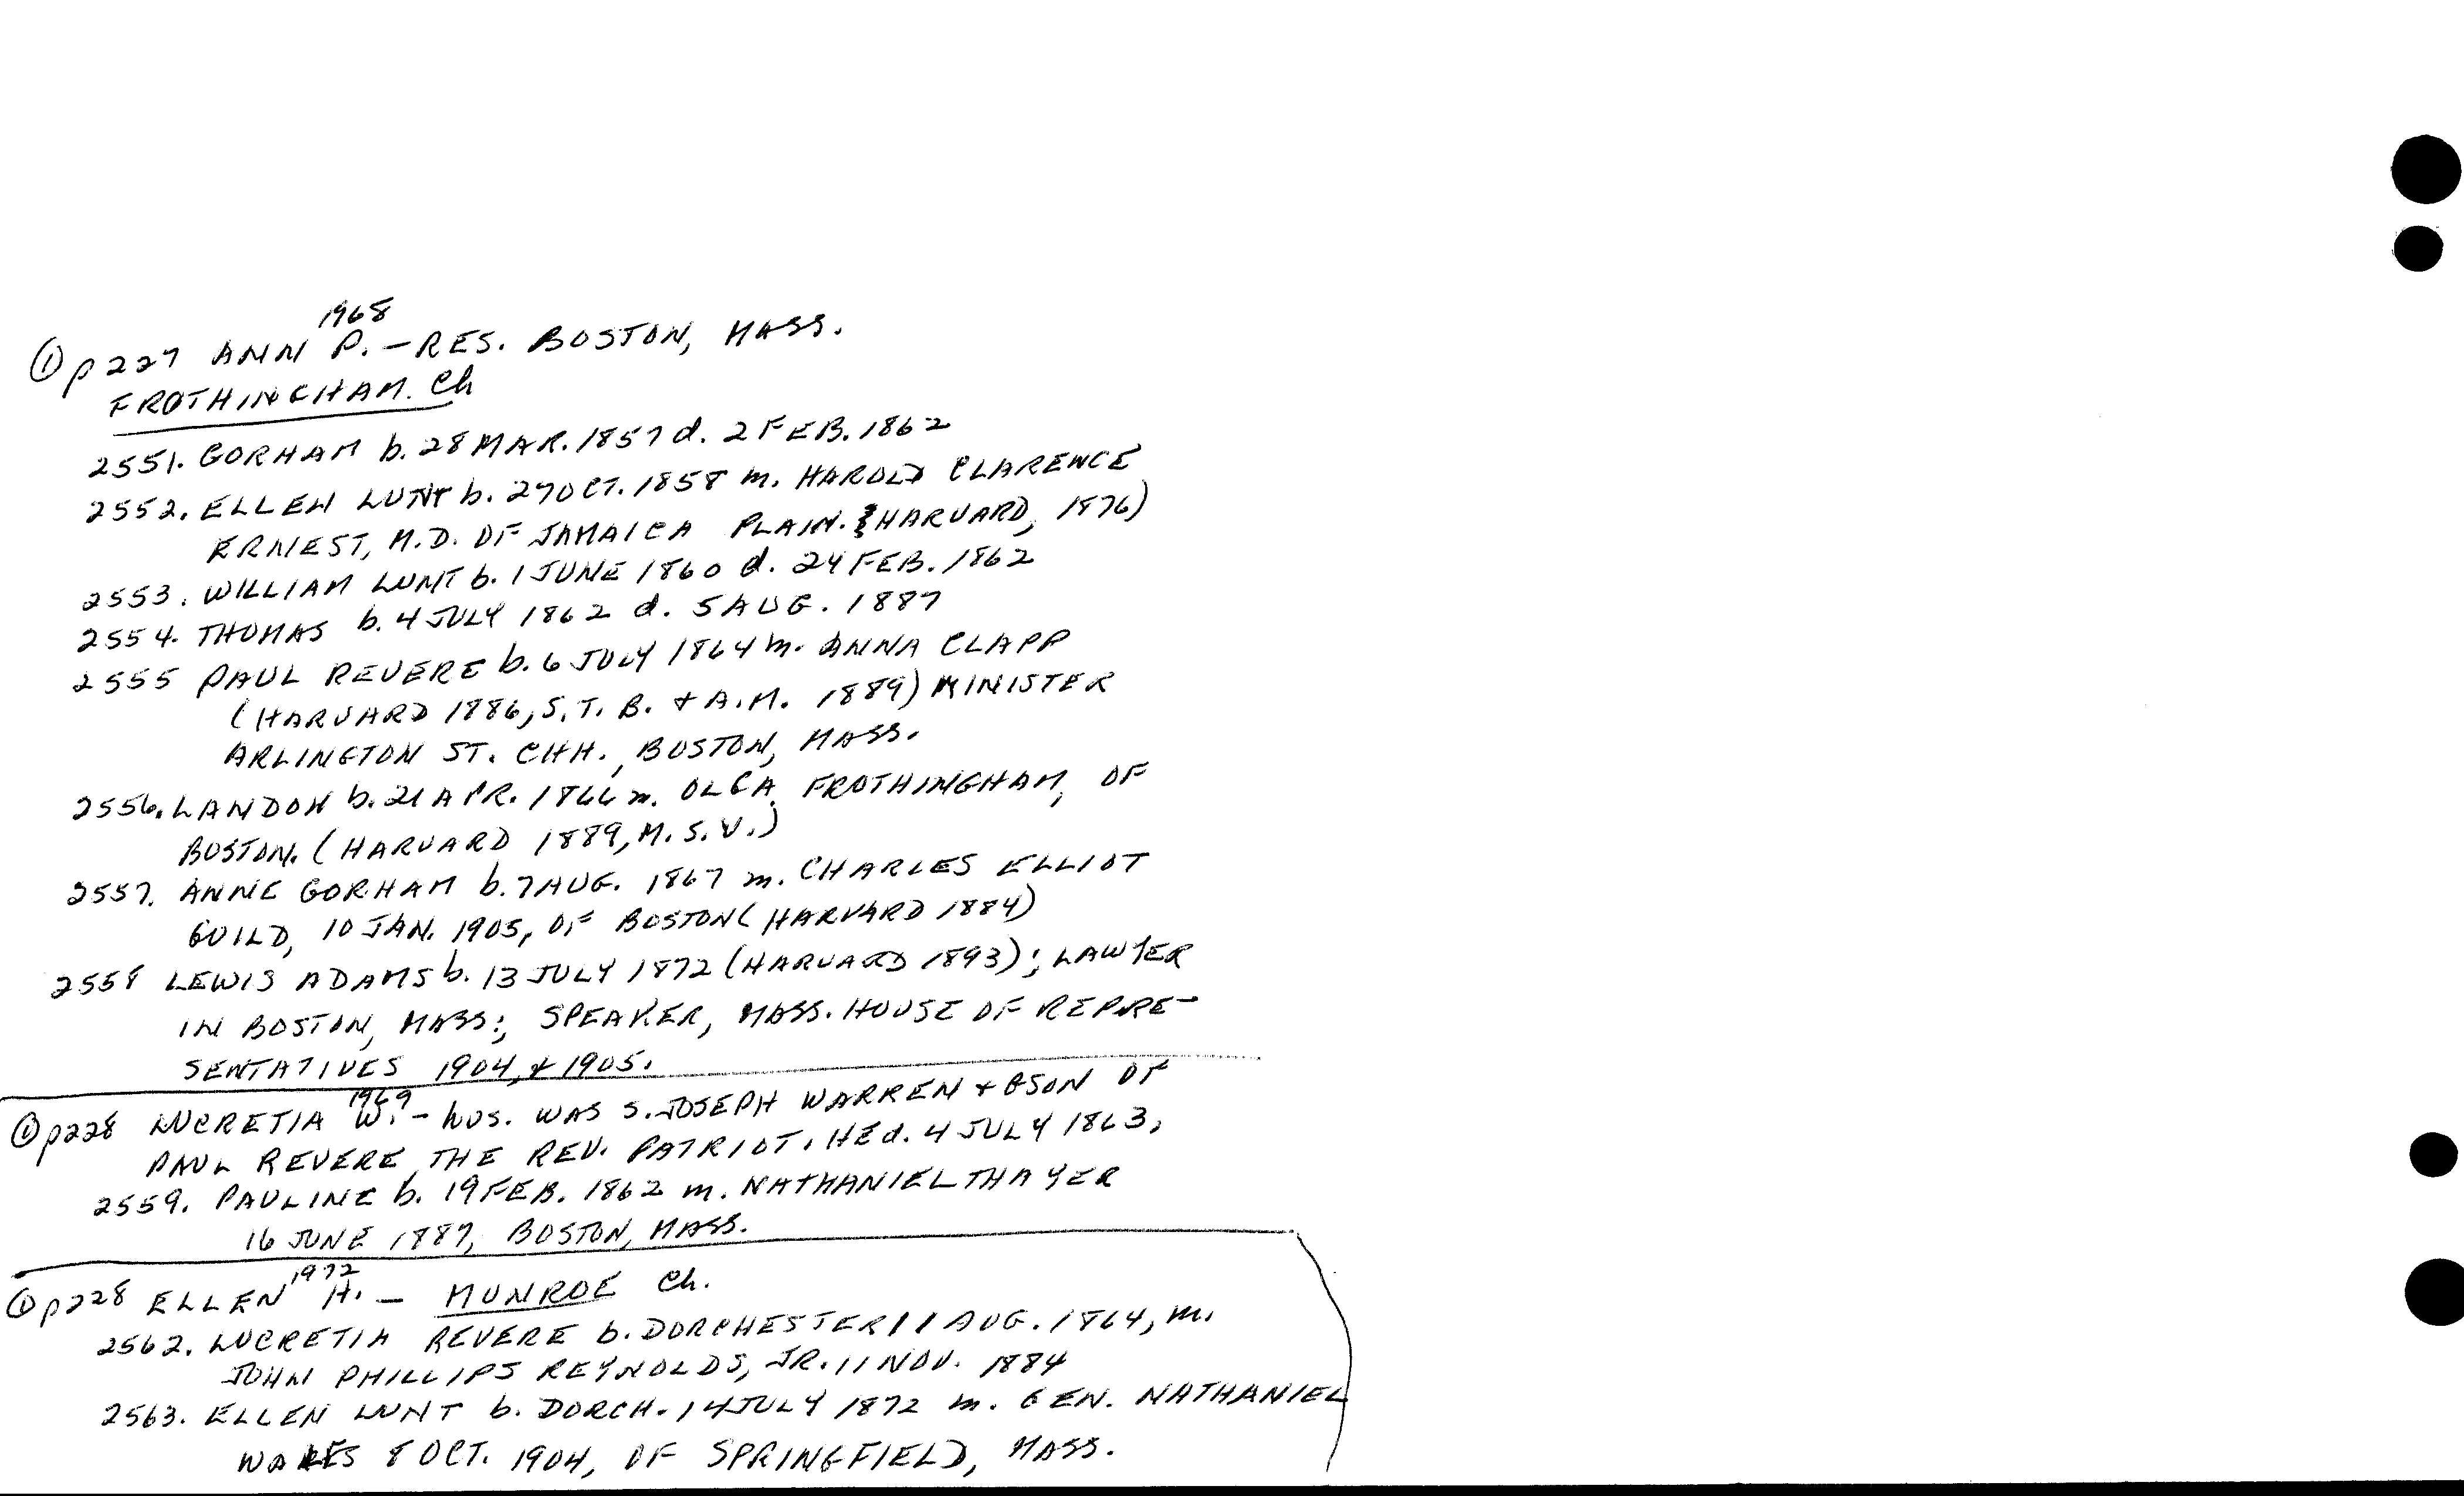 1968
① p227 ANN P. — RES. BOSTON, MASS.
FROTHINGHAM. Ch
2551. GORHAM b. 28 MAR. 1857 d. 2 FEB. 1862
2552. ELLEN LUNT b. 27 OCT. 1858 m. HAROLD CLARENCE
ERNEST, M.D. OF JAMAICA PLAIN. (HARVARD, 1876)
2553. WILLIAM LUNT b. 1 JUNE 1860 d. 24 FEB. 1862
2554. THOMAS b. 4 JULY 1862 d. 5 AUG. 1887
2555 PAUL REVERE b. 6 JULY 1864 m. ANNA CLAPP
(HARVARD 1886, S.T.B. + A.M. 1889) MINISTER
ARLINGTON ST. CHH., BOSTON, MASS.
2556. LANDON b. 21 APR. 1866 m. OLGA FROTHINGHAM, OF
BOSTON. (HARVARD 1889, M.S.V.)
2557. ANNE GORHAM b. 7 AUG. 1867 m. CHARLES ELLIOT
GUILD, 10 JAN. 1905, OF BOSTON (HARVARD 1884)
2558 LEWIS ADAMS b. 13 JULY 1872 (HARVARD 1893); LAWYER
IN BOSTON, MASS; SPEAKER, MASS. HOUSE OF REPRE-
SENTATIVES 1904, + 1905.
1969
① p228 LUCRETIA W. — hus. WAS S. JOSEPH WARREN + GSON OF
PAUL REVERE, THE REV. PATRIOT. HE d. 4 JULY 1863,
2559. PAULINE b. 19 FEB. 1862 m. NATHANIEL THAYER
16 JUNE 1887, BOSTON, MASS.
1972
① p228 ELLEN H. — MUNROE Ch.
2562. LUCRETIA REVERE b. DORCHESTER 11 AUG. 1864, m.
JOHN PHILLIPS REYNOLDS, JR. 11 NOV. 1884
2563. ELLEN LUNT b. DORCH. 14 JULY 1872 m. GEN. NATHANIEL
WALES 8 OCT. 1904, OF SPRINGFIELD, MASS.